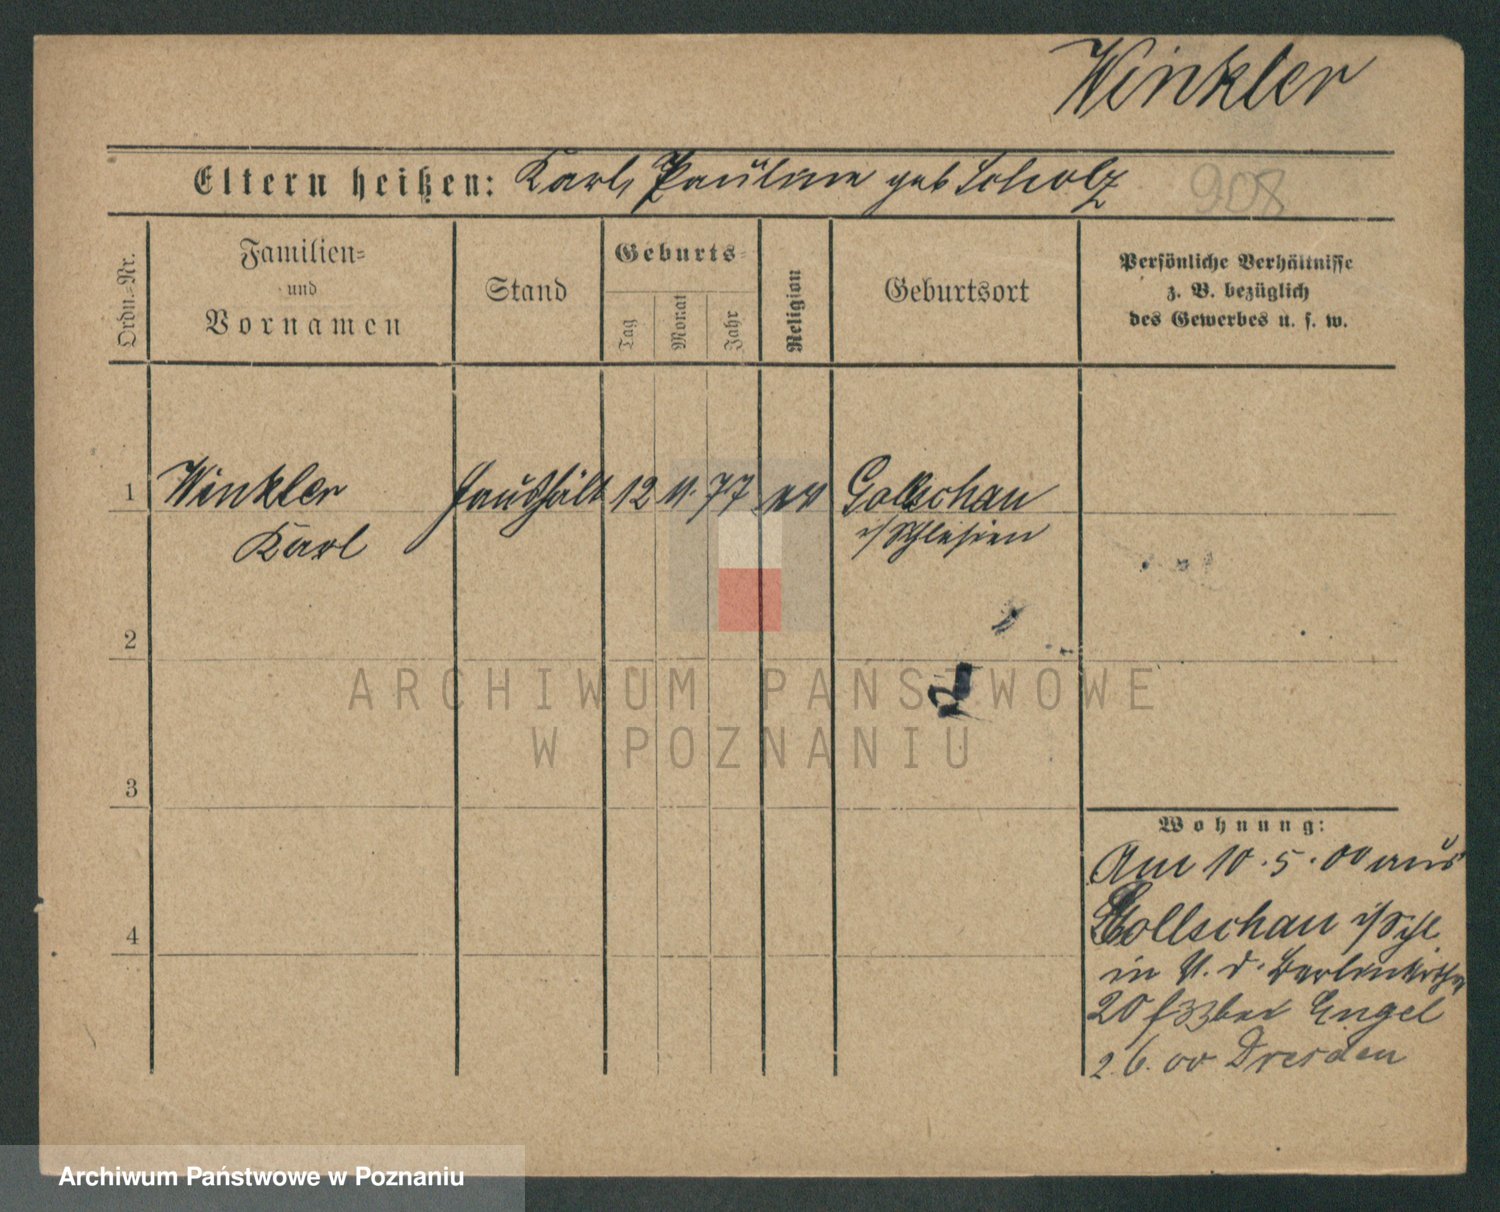 Winkler
Eltern heißen: Karl, Pauline geb Scholz
908
Ordn.-Nr.
Familien-
und
Vornamen
Stand
Geburts-
Tag
Monat
Jahr
Religion
Geburtsort
Persönliche Verhältnisse
z. B. bezüglich
des Gewerbes u. s. w.
1 Winkler Haushält 12 11. 77 ev Gollschau
Karl i/Schlesien
2
3
4
Wohnung:
Am 10.5.00 aus
Gollschau i/Schl
in U. d.
20 bei Engel
2.6.00 Dresden
ARCHIWUM PAŃSTWOWE
W POZNANIU
Archiwum Państwowe w Poznaniu